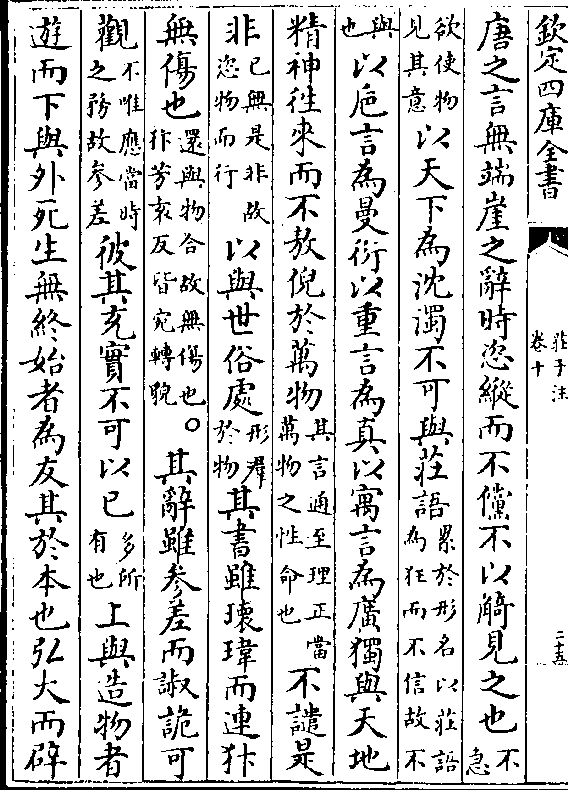 欽定四庫全書 莊子注 卷十 二十五
唐之言無端崖之辭時恣縱而不儻不以觭見之也不急
欲使物見其意以天下為沈濁不可與莊語累於形名以莊語為狂而不信故不
與也以巵言為曼衍以重言為真以寓言為廣獨與天地
精神往來而不敖倪於萬物其言通至理正當萬物之性命也不譴是
非已無是非故恣物而行以與世俗處形羣於物其書雖瓌瑋而連犿
無傷也還與物合故無傷也犿芳袁反皆宛轉貌。其辭雖參差而諔詭可
觀不唯應當時之務故參差彼其充實不可以已多所有也上與造物者
遊而下與外死生無終始者為友其於本也弘大而辟